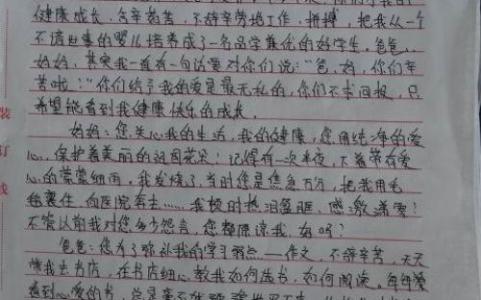 健康成长，含辛茹苦、不辞辛劳地工作，拼搏，把我从一个
不懂世事的婴儿培养成了一名品学兼优的好学生。爸爸、
妈妈，其实我一直有一句话要对你们说："爸、妈，你们辛
苦啦！"你们给予我的爱是最无私的，你们不求回报，只
希望能看到我健康快乐的成长。
妈妈：您关心我的生活，我的健康，您用纯净的爱
心，保护着美丽的祖国花朵！记得有一次半夜，下着带有爱
心的蒙蒙细雨，我发烧了，当时您是焦急万分，把我用毛
毯裹住，向医院奔去……我顿时热泪盈眶，感激涕零！
不管以前我对您多少怨言，您都原谅我，好吗？
爸爸：您为了弥补我的学习弱点——作文，不辞辛苦，天天
带我去书店，在书店细心教我如何选书，如何阅读。每每
看到心爱的书，总是
装
订
线